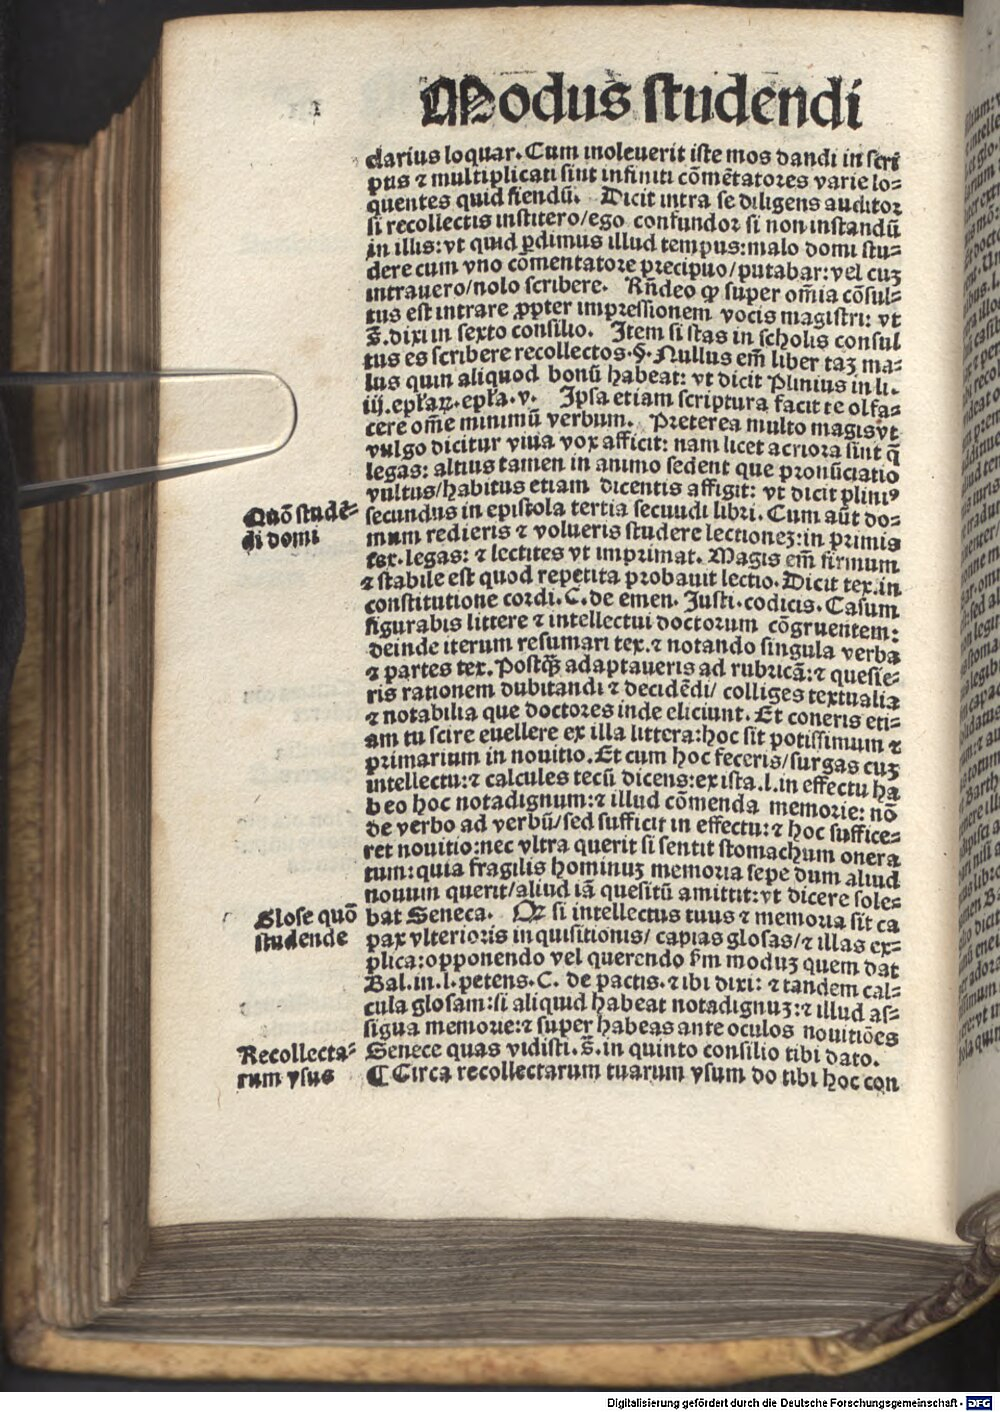 Modus studendi
clarius loquar. Cum inoleuerit iste mos dandi in scri
ptis ⁊ multiplicati sint infiniti cōmētatores varie lo⸗
quentes quid fiendū. Dicit intra se diligens auditor
si recollectis institero/ego confundor si non instandū
in illis: vt quid ꝑdimus illud tempus: malo domi stu⸗
dere cum vno cōmentatore precipuo/putabar: vel cuꝫ
intrauero/nolo scribere. Rn̄deo ꝙ super om̄ia cōsul⸗
tus est intrare ꝓpter impressionem vocis magistri: vt
s̄. dixi in sexto consilio. Item si stas in scholis consul
tus es scribere recollectos. §. Nullus em̄ liber taꝫ ma⸗
lus quin aliquod bonū habeat: vt dicit Plinius in li.
iij. epl'aꝝ. epl'a. v. Ipsa etiam scriptura facit te olfa⸗
cere om̄e minimū verbum. Preterea multo magis vt
vulgo dicitur viua vox afficit: nam licet acriora sint q̄
legas: altius tamen in animo sedent que pronūciatio
vultus/habitus etiam dicentis affigit: vt dicit pliniꝰ
secundus in epistola tertia secuudi libri. Cum aūt do⸗
mum redieris ⁊ volueris studere lectioneꝫ: in primis
tex. legas: ⁊ lectites vt imprimat. Magis em̄ firmum
⁊ stabile est quod repetita probauit lectio. Dicit tex. in
constitutione cordi. C. de emen. Justi. codicis. Casum
figurabis littere ⁊ intellectui doctorum cōgruentem:
deinde iterum resumari tex. ⁊ notando singula verba
⁊ partes tex. Postqꝫ adaptaueris ad rubricā: ⁊ quesie⸗
ris rationem dubitandi ⁊ decidēdi/ colliges textualia
⁊ notabilia que doctores inde eliciunt. Et coneris eti⸗
am tu scire euellere ex illa littera: hoc sit potissimum ⁊
primarium in nouitio. Et cum hoc feceris/surgas cuꝫ
intellectu: ⁊ calcules tecū dicens: ex ista. l. in effectu ha
beo hoc notadignum: ⁊ illud cōmenda memorie: nō
de verbo ad verbū/sed sufficit in effectu: ⁊ hoc suffice⸗
ret nouitio: nec vltra querit si sentit stomachum onera
tum: quia fragilis hominuꝫ memoria sepe dum aliud
nouum querit/aliud iā quesitū amittit: vt dicere sole⸗
bat Seneca. Qꝛ si intellectus tuus ⁊ memoria sit ca
pax vlterioris inquisitionis/ capias glosas/⁊ illas ex⸗
plica: opponendo vel querendo ẜm moduꝫ quem dat
Bal. in. l. petens. C. de pactis. ⁊ ibi dixi: ⁊ tandem cal⸗
cula glosam: si aliquid habeat notadignuꝫ: ⁊ illud as⸗
signa memorie: ⁊ super habeas ante oculos nouitiōes
Senece quas vidisti. s̄. in quinto consilio tibi dato.
¶ Circa recollectarum tuarum vsum do tibi hoc con
Quō studē⸗
di domi
Glose quō
studende
Recollecta⸗
rum vsus
Digitalisierung gefördert durch die Deutsche Forschungsgemeinschaft - DFG